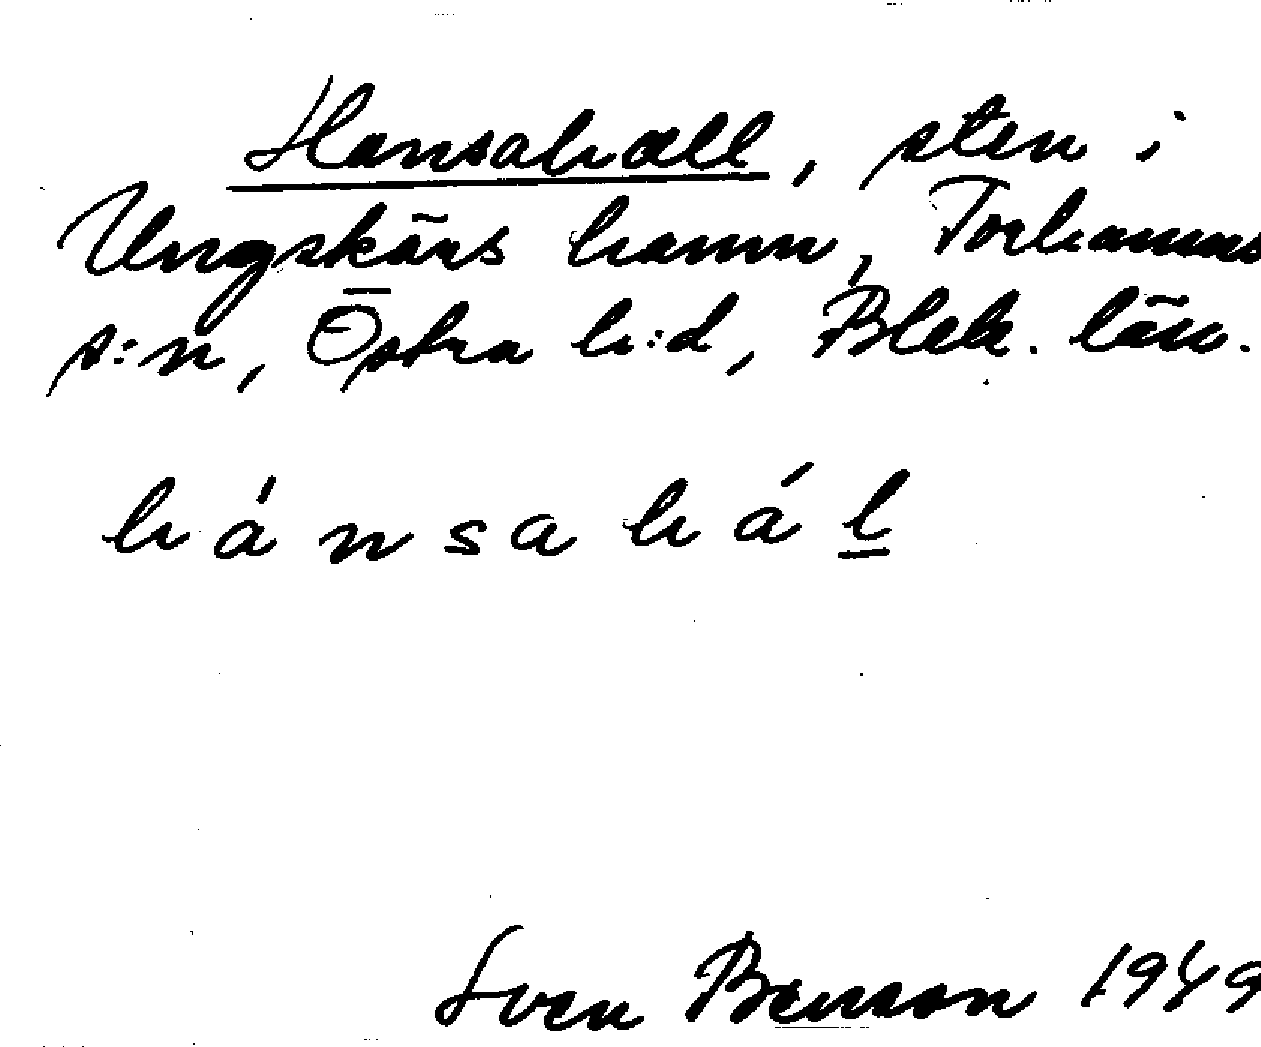 Hansahall, sten i
Ungskärs hamn, Torhamns
s:n, Östra h:d, Blek. län.
hánsahál
Sven Benson 1949